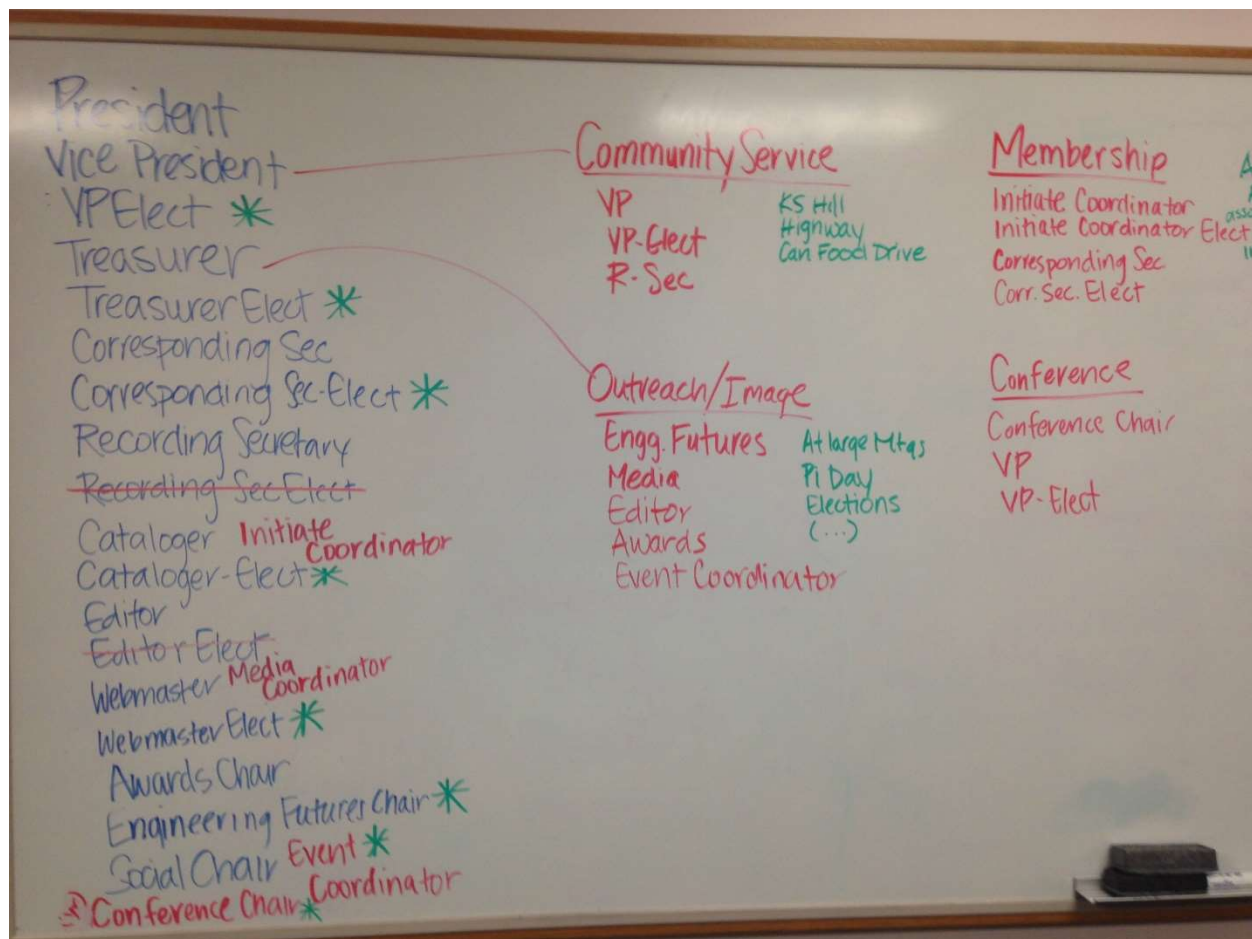 President
Vice President
VP Elect *
Treasurer
Treasurer Elect *
Corresponding Sec
Corresponding Sec-Elect *
Recording Secretary
Recording Sec Elect
Cataloger Initiate Coordinator
Cataloger-Elect *
Editor
Editor Elect
Webmaster Media Coordinator
Webmaster Elect *
Awards Chair
Engineering Futures Chair *
Social Chair Event Coordinator *
Conference Chair *
Community Service
VP
VP-Elect
R-Sec
KS Hill
Highway
Can Food Drive
Outreach/Image
Engg. Futures
Media
Editor
Awards
Event Coordinator
At large Mtgs
Pi Day
Elections
(...)
Membership
Initiate Coordinator
Initiate Coordinator Elect
Corresponding Sec
Corr. Sec. Elect
Conference
Conference Chair
VP
VP-Elect